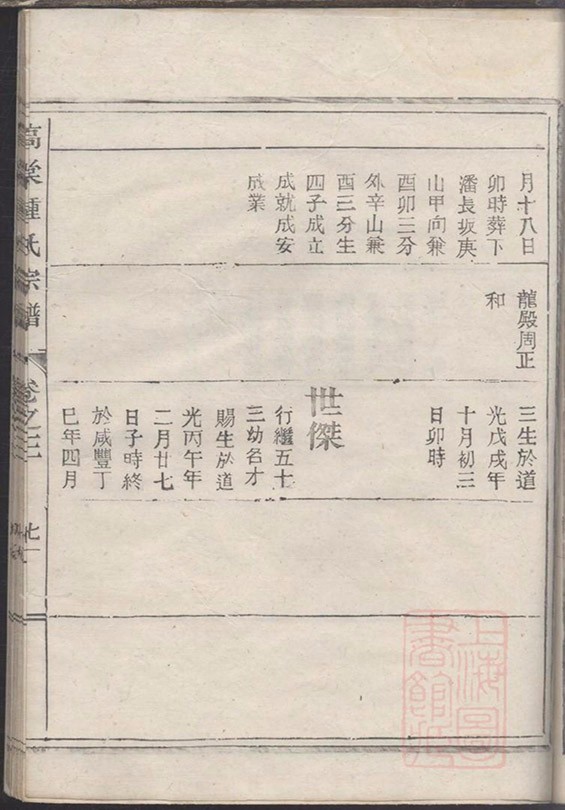 月十八日
卯時葬下
潘長坂庚
山甲向兼
酉卯三分
外辛山兼
酉三分生
四子成立
成就成安
成業
龍殿周正
和
三生於道
光戊戌年
十月初三
日卯時
世傑
行繼五十
三幼名才
賜生於道
光丙午年
二月廿七
日子時終
於咸豐丁
巳年四月
高棠鍾氏宗譜
卷之三
上海圖書館藏